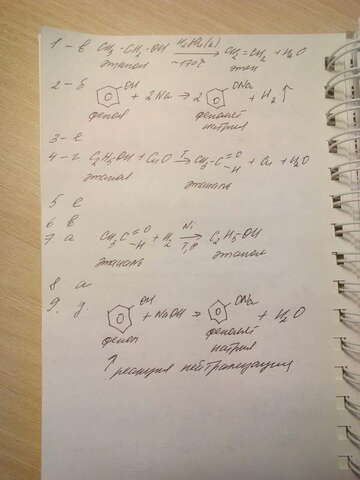 1 - в CH₃-CH₂-OH H₂SO₄(к) ~170°C → CH₂=CH₂ + H₂O
этанол этен
2 - б OH + 2Na → 2 ONa + H₂↑
фенол фенолят
натрия
3 - е
4 - г C₂H₅OH + CuO T → CH₃-C=O -H + Cu + H₂O
этанол этаналь
5 е
6 в
7 а CH₃C=O -H + H₂ Ni T,P → C₂H₅OH
этаналь этанол
8 а
9. д OH + NaOH → ONa + H₂O
фенол фенолят
натрия
↑ реакция нейтрализации